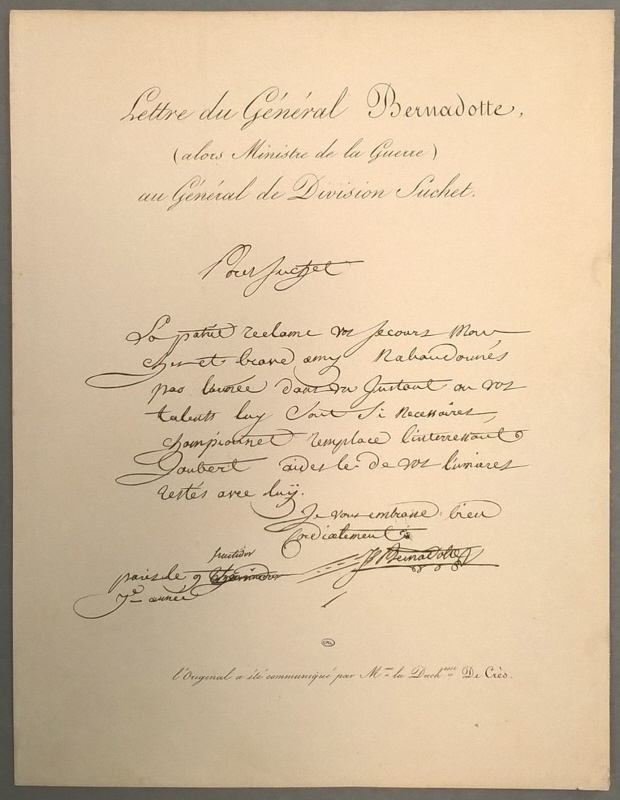 Lettre du Général Bernadotte,
(alors Ministre de la Guerre)
au Général de Division Suchet.
Pour Suchet
La patrie reclame vos secours Mon
cher et brave amy Nabandonnés
pas larmée dans un Instant ou vos
talents luy Sont Si necessaires,
championnet remplace linterressant
Joubert aides le de vos lumieres
restés avec luÿ.
Je vous embrasse bien
Cordialement
fructidor
paris le 9 J Bernadotte
7e année
l'Original a été communiqué par Mme la Duchesse De Crès.